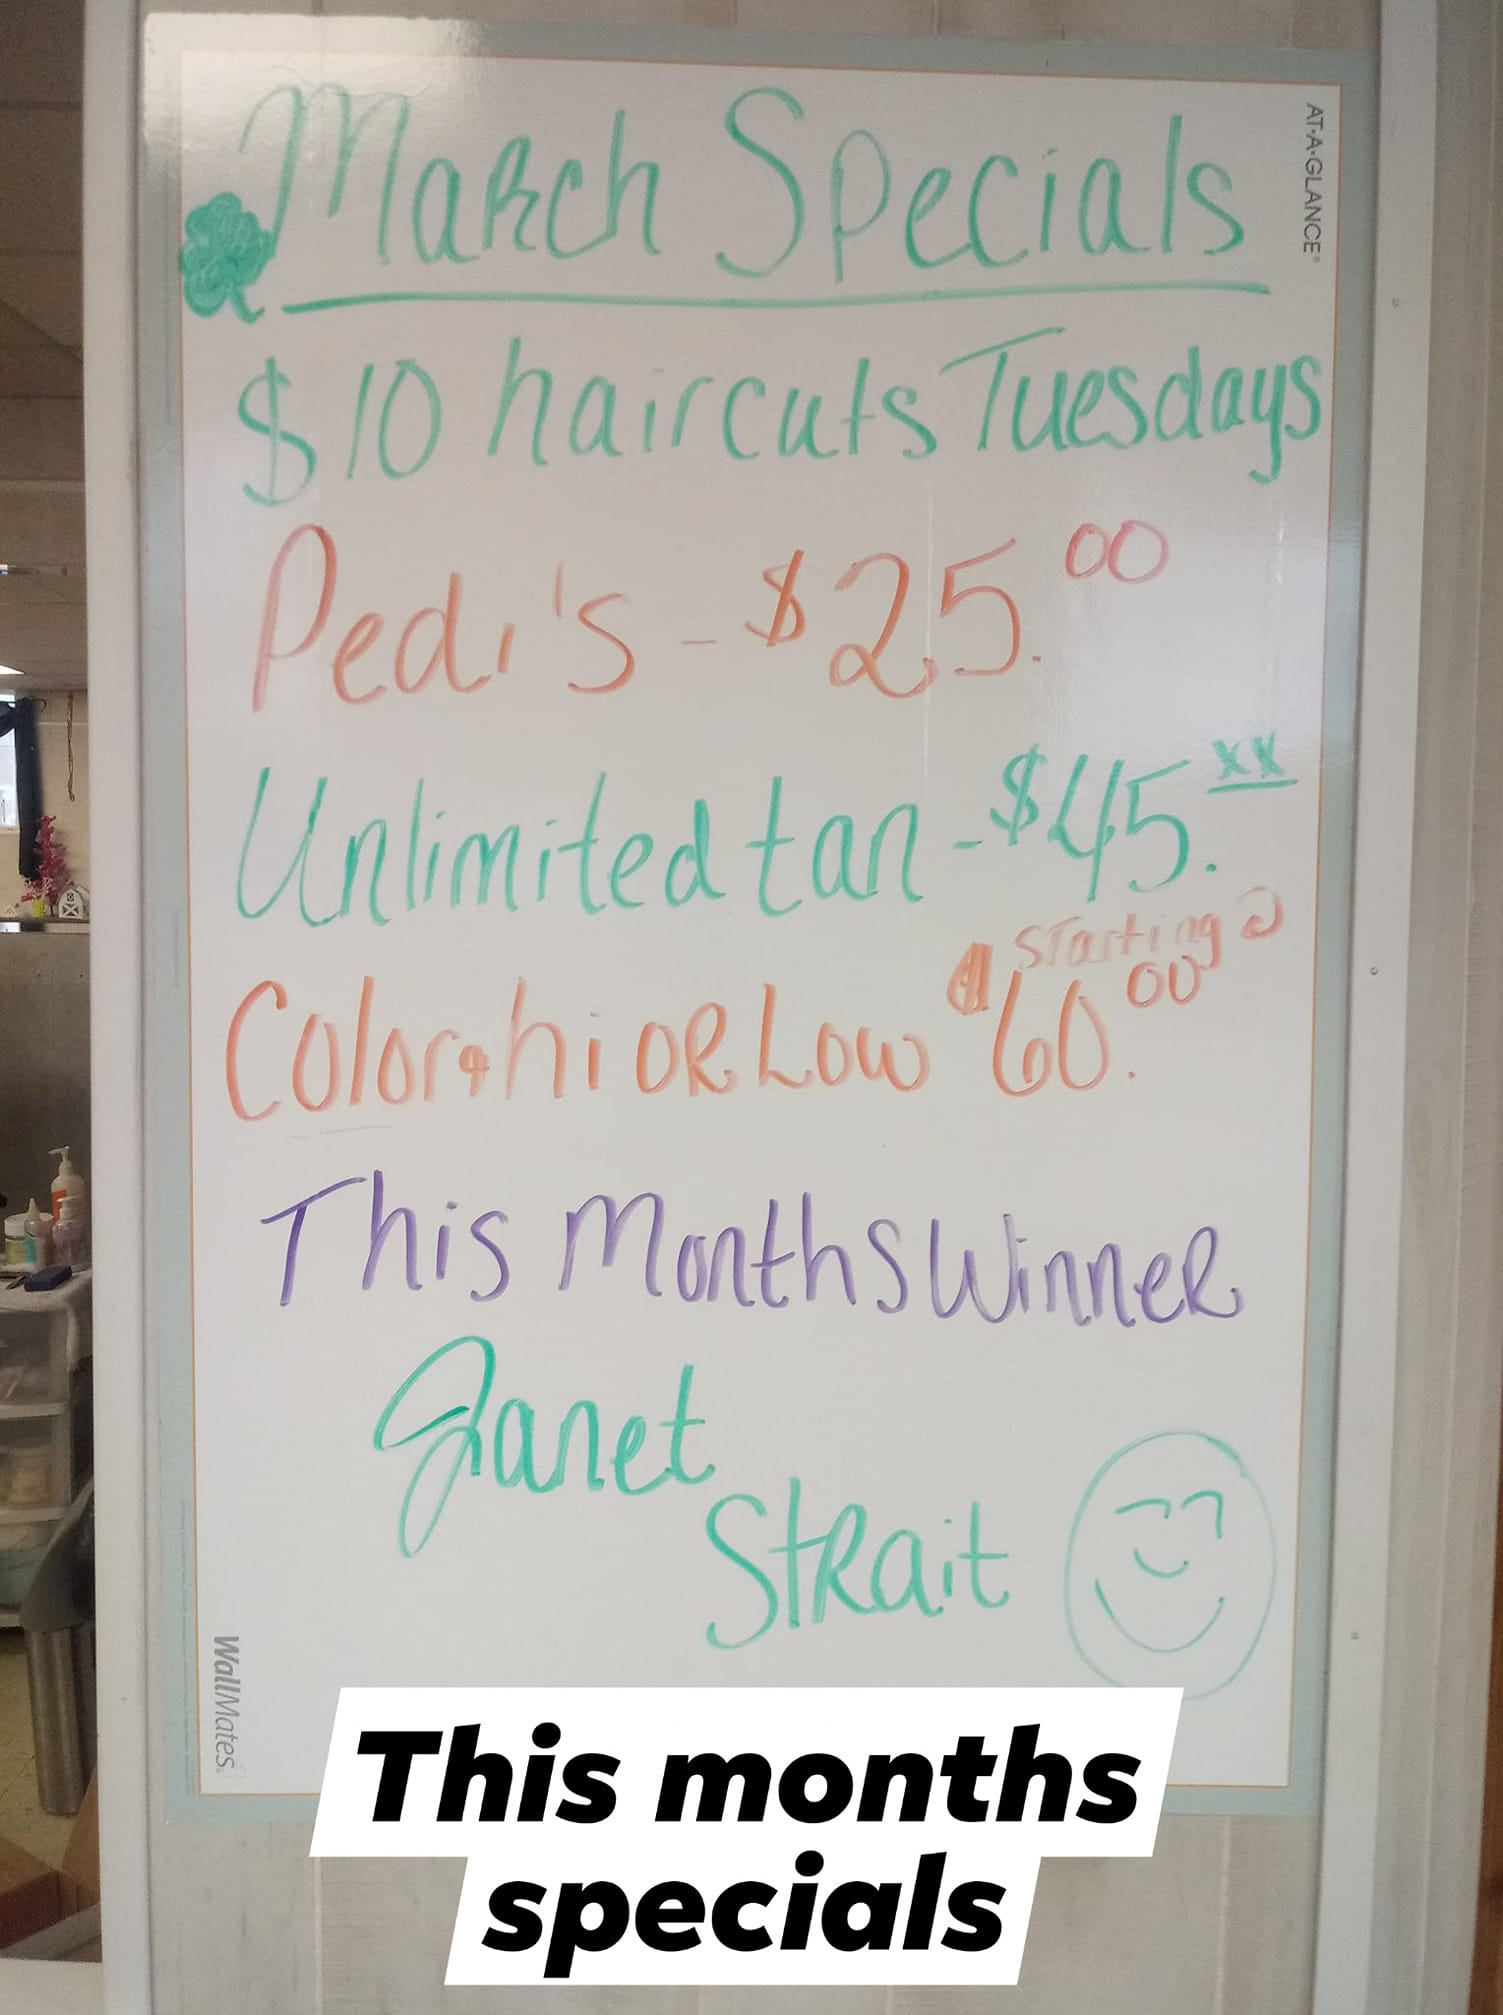 AT-A-GLANCE®
March Specials
$10 haircuts Tuesdays
Pedi's - $25.00
Unlimited tan - $45.xx
Starting @
Color & hi or Low $60.00
This Months Winner
Janet
Strait
WallMates®
This months
specials